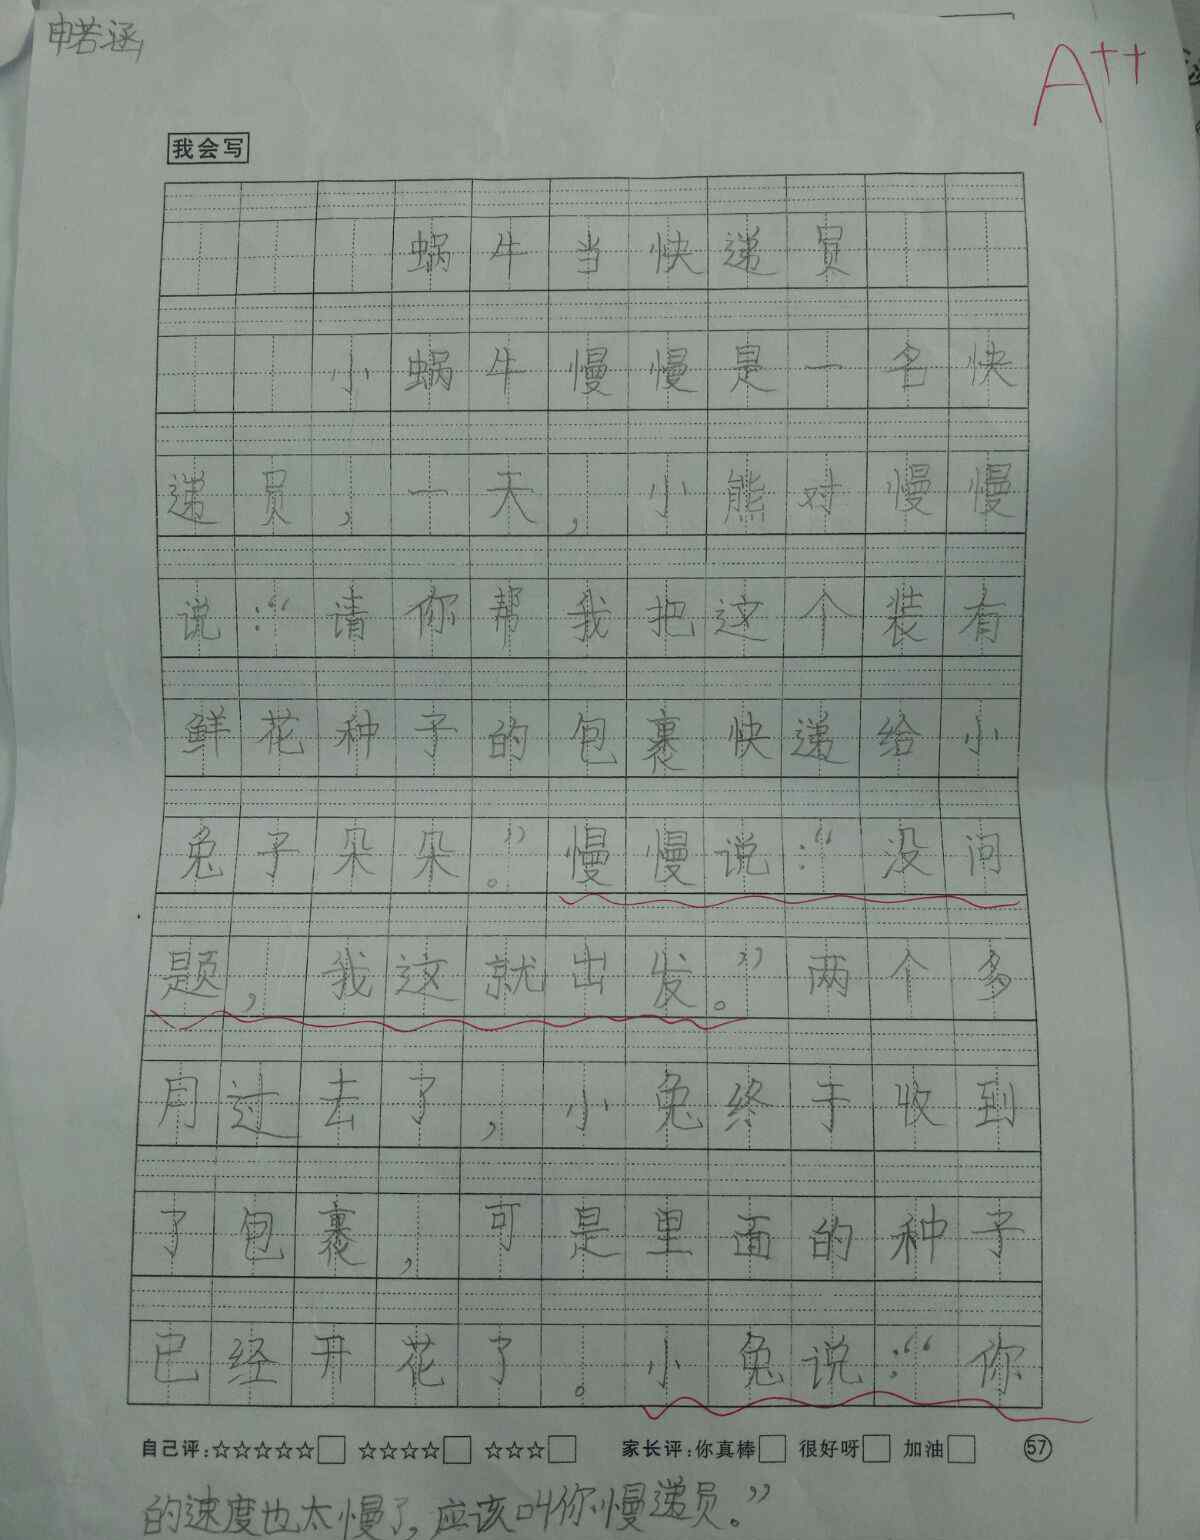 申若涵
A++
我会写
蜗牛当快递员
小蜗牛慢慢是一名快
递员,一天,小熊对慢慢
说:“请你帮我把这个装有
鲜花种子的包裹快递给小
兔子朵朵。”慢慢说:“没问
题,我这就出发。”两个多
月过去了,小兔终于收到
了包裹,可是里面的种子
已经开花了。小兔说:“你
自己评:☆☆☆☆☆□ ☆☆☆☆□ ☆☆☆□ 家长评:你真棒□ 很好呀□ 加油□ 57
的速度也太慢了,应该叫你慢递员。”